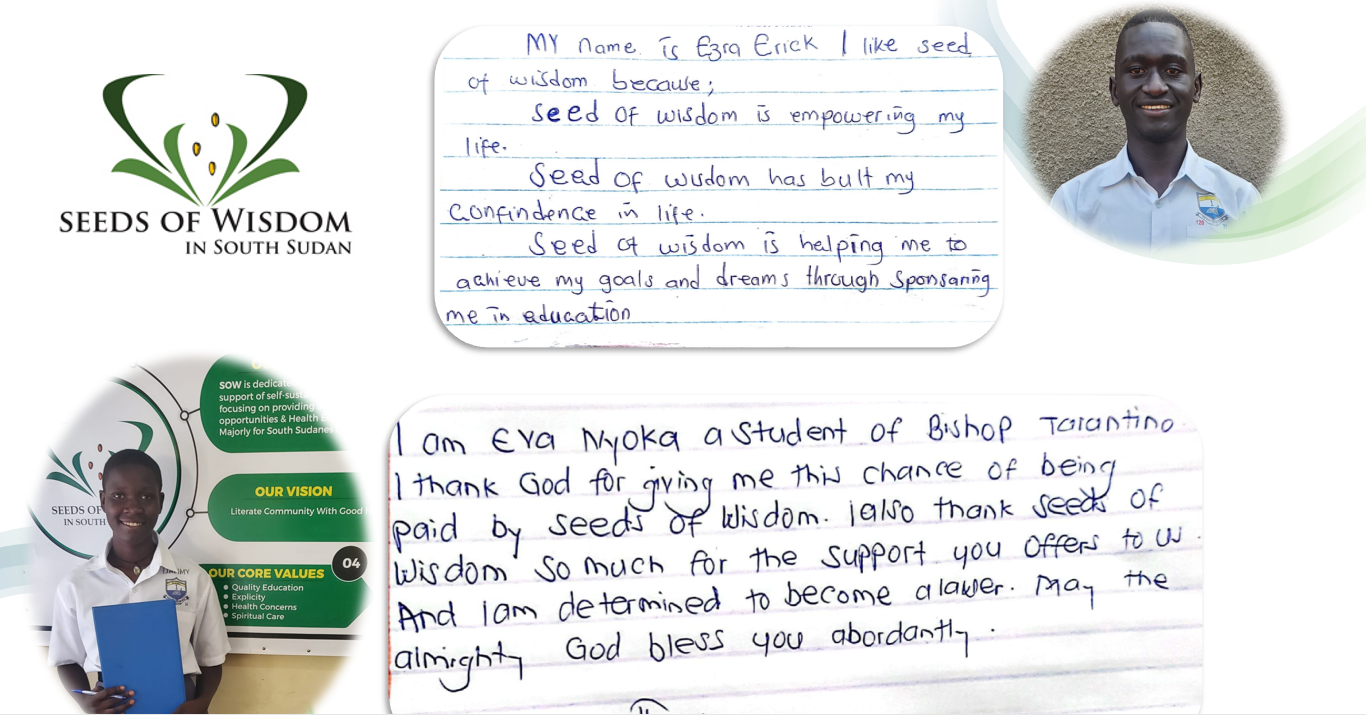 SEEDS OF WISDOM
IN SOUTH SUDAN
MY name is Ezra Erick I like seed
of wisdom because;
Seed OF wisdom is empowering my
life.
Seed OF wisdom has bult my
Confindence in life.
Seed of wisdom is helping me to
achieve my goals and dreams through sponsaring
me in education
SOW is dedicate
support of self-sus
focusing on providing
opportunities & Health
Majorly for South Sudane
OUR VISION
Literate Community With Good
04
OUR CORE VALUES
Quality Education
Explicity
Health Concerns
Spiritual Care
SEEDS OF
IN SOUTH
I am Eva Nyoka a student of Bishop Tarantino.
I thank God for giving me this chance of being
paid by seeds of Wisdom. I also thank seeds of
Wisdom so much for the support you offers to us.
And I am determined to become a lawer. May the
almighty God bless you abordantly.